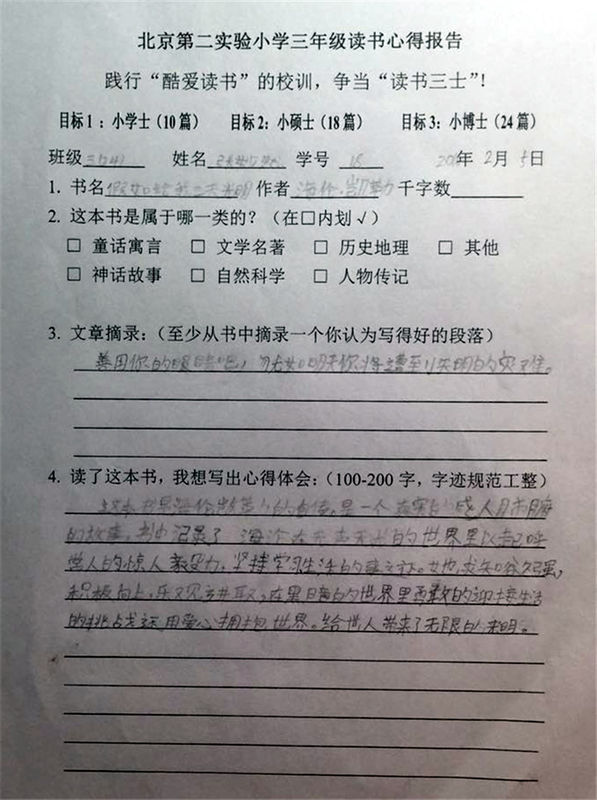 北京第二实验小学三年级读书心得报告
践行“酷爱读书”的校训，争当“读书三士”！
目标1：小学士（10篇） 目标2：小硕士（18篇） 目标3：小博士（24篇）
班级 姓名 学号 18 年 2月 5日
1. 书名 假如给我三天光明 作者 海伦·凯勒 千字数
2. 这本书是属于哪一类的？（在□内划√）
□ 童话寓言 □ 文学名著 □ 历史地理 □ 其他
□ 神话故事 □ 自然科学 □ 人物传记
3. 文章摘录：（至少从书中摘录一个你认为写得好的段落）
善用你的眼睛吧，犹如明天你将遭到失明的灾难。
4. 读了这本书，我想写出心得体会：（100-200字，字迹规范工整）
这本书是海伦凯勒的自传，是一个真实的感人肺腑
的故事。书中记录了海伦在无声无光的世界里以
人的惊人毅力，坚持学习生活的
积极向上，乐观进取，在黑暗的世界里勇敢的迎接生活
的挑战，运用爱心拥抱世界。给世人带来了无限的光明。